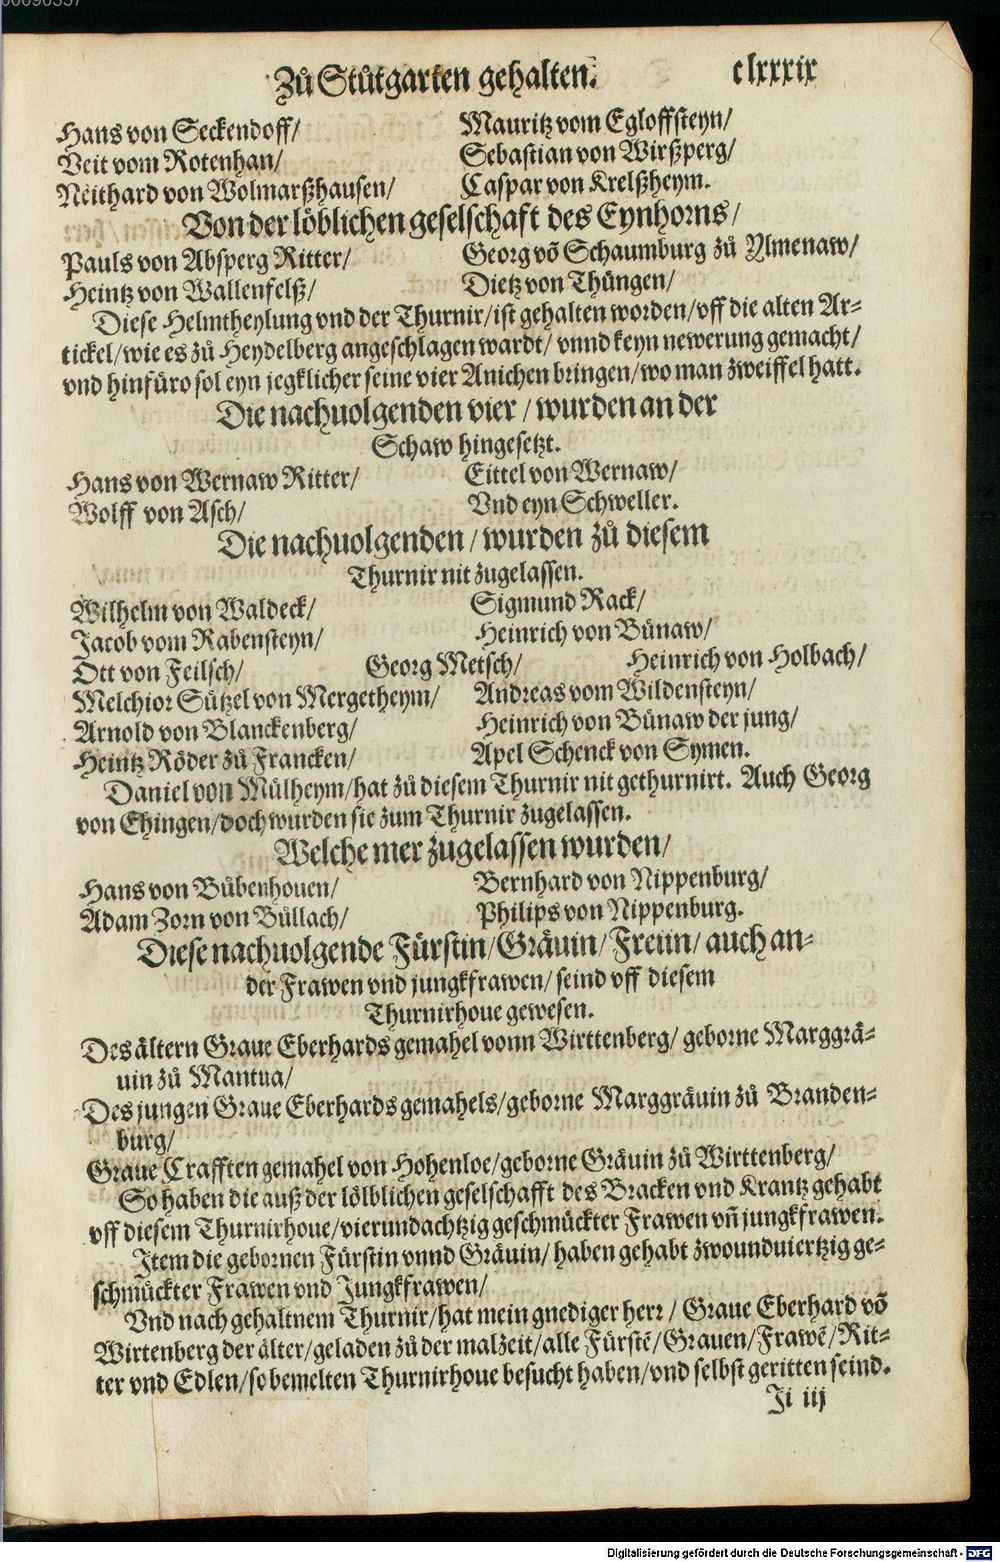 00090357
Zů Stůtgarten gehalten. clxxxix
Hans von Seckendoff/ Mauritz vom Egloffsteyn/
Veit vom Rotenhan/ Sebastian von Wirßperg/
Neithard von Wolmarßhausen/ Caspar von Krelßheym.
Von der löblichen geselschaft des Eynhorns/
Pauls von Absperg Ritter/ Georg võ Schaumburg zů Ylmenaw/
Heintz von Wallenfelß/ Dietz von Thüngen/
Diese Helmtheylung vnd der Thurnir/ist gehalten worden/vff die alten Ar-
tickel/wie es zů Heydelberg angeschlagen wardt/ vnnd keyn newerung gemacht/
vnd hinfüro sol eyn jegklicher seine vier Anichen bringen/wo man zweiffel hatt.
Die nachuolgenden vier / wurden an der
Schaw hingesetzt.
Hans von Wernaw Ritter/ Eittel von Wernaw/
Wolff von Asch/ Vnd eyn Schweller.
Die nachuolgenden / wurden zů diesem
Thurnir nit zugelassen.
Wilhelm von Waldeck/ Sigmund Rack/
Jacob vom Rabensteyn/ Heinrich von Bünaw/
Ott von Feilsch/ Georg Metsch/ Heinrich von Holbach/
Melchior Sützel von Mergetheym/ Andreas vom Wildensteyn/
Arnold von Blanckenberg/ Heinrich von Bünaw der jung/
Heintz Röder zů Francken/ Apel Schenck von Symen.
Daniel von Mülheym/hat zů diesem Thurnir nit gethurnirt. Auch Georg
von Ehingen/doch wurden sie zum Thurnir zugelassen.
Welche mer zugelassen wurden/
Hans von Bůbenhouen/ Bernhard von Nippenburg/
Adam Zorn von Büllach/ Philips von Nippenburg.
Diese nachuolgende Fürstin/Gräuin/Freiin/ auch an-
der Frawen vnd jungkfrawen/ seind vff diesem
Thurnirhoue gewesen.
Des ältern Graue Eberhards gemahel vonn Wirttenberg/ geborne Marggrä-
uin zů Mantua/
Des jungen Graue Eberhards gemahels/geborne Marggräuin zů Branden-
burg/
Graue Crafften gemahel von Hohenloe/geborne Gräuin zů Wirttenberg/
So haben die auß der lölblichen geselschafft des Bracken vnd Krantz gehabt
vff diesem Thurnirhoue/vierundachtzig geschmückter Frawen vñ jungkfrawen.
Item die gebornen Fürstin vnnd Gräuin/ haben gehabt zwounduiertzig ge-
schmückter Frawen vnd Jungkfrawen/
Vnd nach gehaltnem Thurnir/hat mein gnediger herr / Graue Eberhard võ
Wirtenberg der älter/geladen zů der malzeit/alle Fürstẽ/Grauen/Frawẽ/Rit-
ter vnd Edlen/so bemelten Thurnirhoue besucht haben/vnd selbst geritten seind.
Ji iij
Digitalisierung gefördert durch die Deutsche Forschungsgemeinschaft - DFG